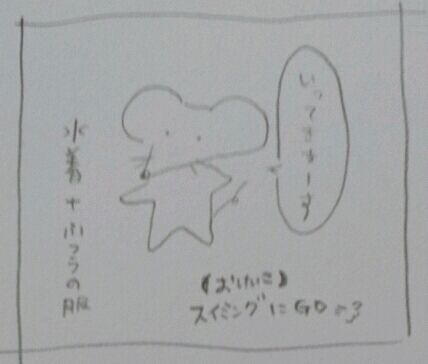 いってきまーす
水着+ふつうの服
【おけいこ】
スイミングにGO=3